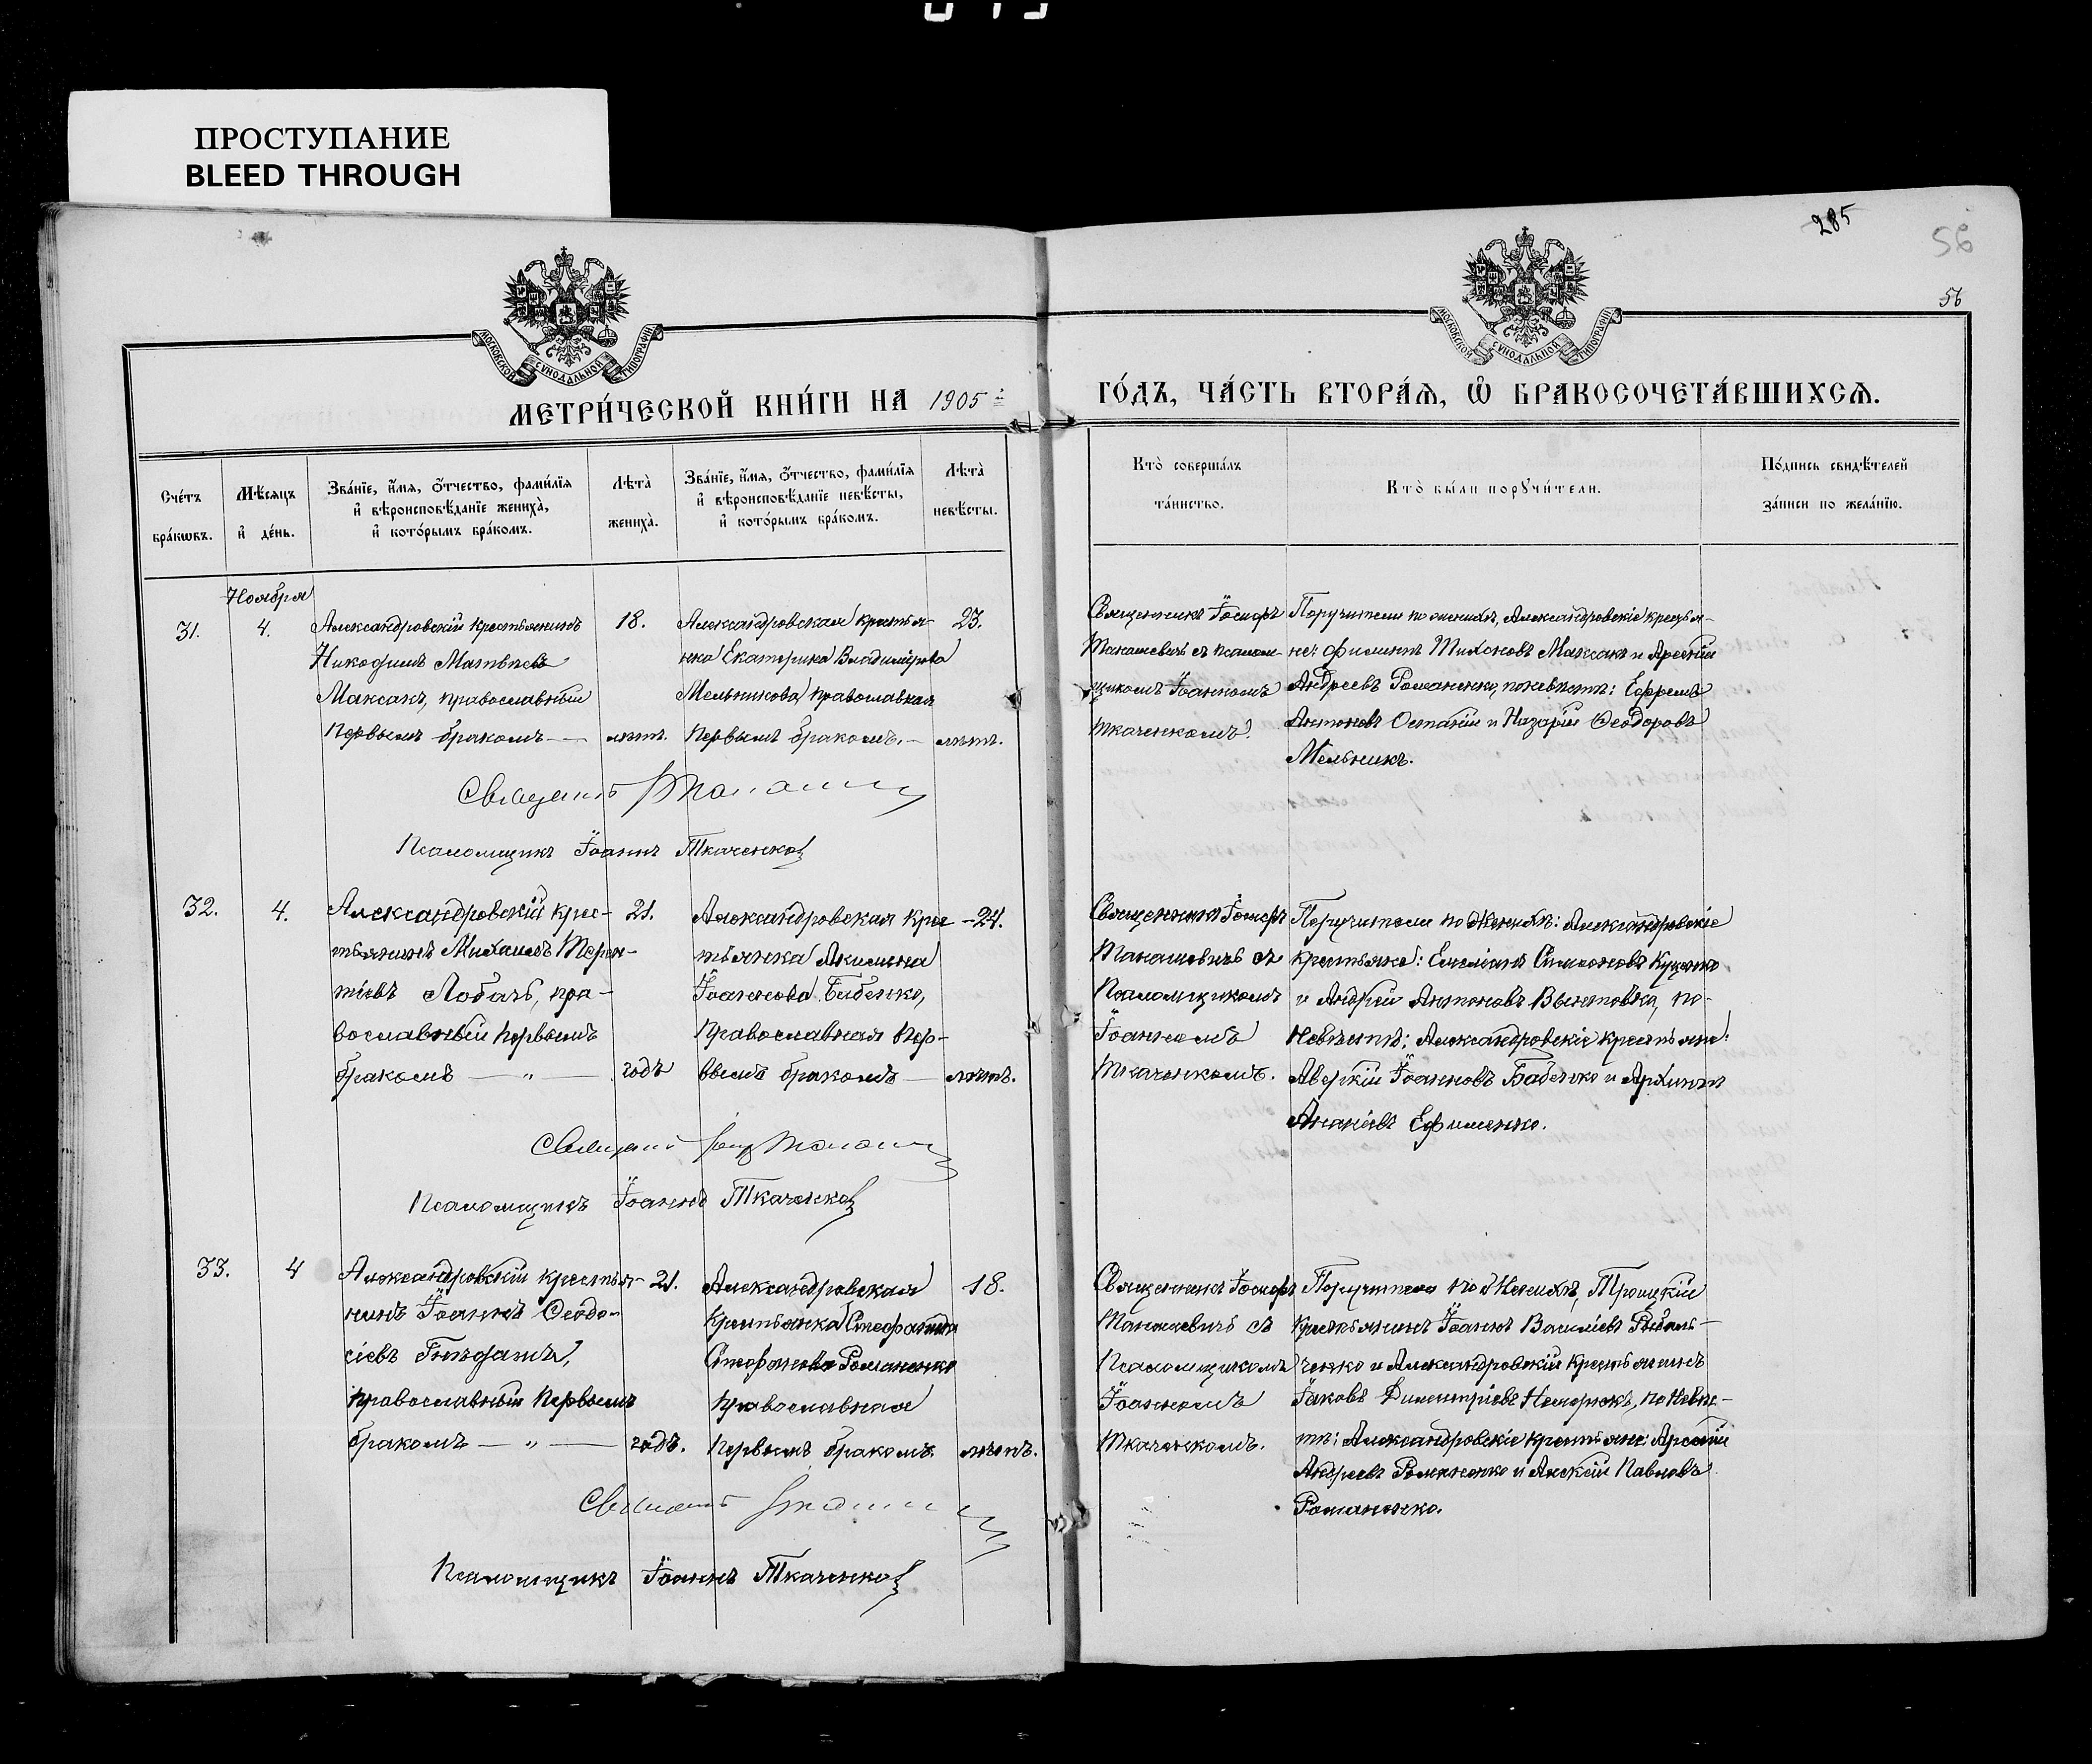 ПРОСТУПАНИЕ
BLEED THROUGH
285
56
56
МОСКОВСКОЙ СУНОДАЛЬНОЙ ТИПОГРАФІИ
МОСКОВСКОЙ СУНОДАЛЬНОЙ ТИПОГРАФІИ
МЕТРИ́ЧЕСКОЙ КНИ́ГИ НА 1905
ГО́ДЪ, ЧА́СТЬ ВТОРА́Ѧ, Ѡ БРАКОСОЧЕТА́ВШИХСѦ.
Сче́тъ бра́кѡвъ.
Мѣ́сяцъ и҆ де́нь.
Зва́нїе, и҆́мя, ѻ҆́тчество, фами́лїя и҆ вѣроисповѣ́данїе жениха̀, и҆ кото́рымъ бра́комъ.
Лѣта̀ жениха̀.
Зва́нїе, и҆́мя, ѻ҆́тчество, фами́лїя и҆ вѣроисповѣ́данїе невѣ́сты, и҆ кото́рымъ бра́комъ.
Лѣта̀ невѣ́сты.
Кто̀ соверша́лъ та́инство.
Кто̀ бы́ли порꙋчи́тели.
По́дпись свидѣ́телей за́писи по жела́нїю.
Ноября
31.
4.
Александровскій крестьянинъ
Никодимъ Матвѣевъ
Максакъ, православный
первымъ бракомъ —
18.
лѣтъ.
Александровская крестья-
нка Екатерина Владимірова
Мельникова, православная
первымъ бракомъ. —
23.
лѣтъ.
Священникъ Іосифъ
Танашевичъ съ псалом-
щикомъ Іоанномъ
Ткаченкомъ.
Поручители по женихѣ, Александровскіе крестья-
не: Филиппъ Тихоновъ Максакъ и Арсеній
Андреевъ Романенко, по невѣстѣ: Ефремъ
Антоновъ Остапій и Назарій Ѳеодоровъ
Мельникъ.
Священникъ
Псаломщикъ Іоаннъ Ткаченко
32.
4.
Александровскій крес-
тьянинъ Михаилъ Терен-
тіевъ Лобачъ, пра-
вославный первымъ
бракомъ — „ —
21.
годъ
Александровская крес-
тьянка Акилина
Іоаннова Бабенко,
православная пер-
вымъ бракомъ —
24.
лѣтъ.
Священникъ Іосифъ
Танашевичъ съ
Псаломщикомъ
Іоанномъ
Ткаченкомъ.
Поручители по женихѣ: Александровскіе
крестьяне: Емеліанъ Симоновъ Куценко
и Андрей Антоновъ, по-
невѣстѣ: Александровскіе крестьяне:
Аверкій Іоанновъ Бабенко и Архиппъ
Ананіевъ Ефименко.
Священникъ
Псаломщикъ Іоаннъ Ткаченко
33.
4
Александровскій крестья-
нинъ Іоаннъ Ѳеодо-
сіевъ
православный первымъ
бракомъ — „ —
21.
годъ.
Александровская
крестьянка Стефанида
Стефанова Романенко
православная
первымъ бракомъ.
18.
лѣтъ.
Священникъ Іосифъ
Танашевичъ съ
Псаломщикомъ
Іоанномъ
Ткаченкомъ.
Поручители по женихѣ, Троицкій
крестьянинъ Іоаннъ Василіевъ Рыбаль-
ченко и Александровскій крестьянинъ
Іаковъ Димитріевъ, по невѣс-
тѣ: Александровскіе крестьяне: Арсеній
Андреевъ Романенко и Алексій Павловъ
Романенко.
Священникъ
Псаломщикъ Іоаннъ Ткаченко